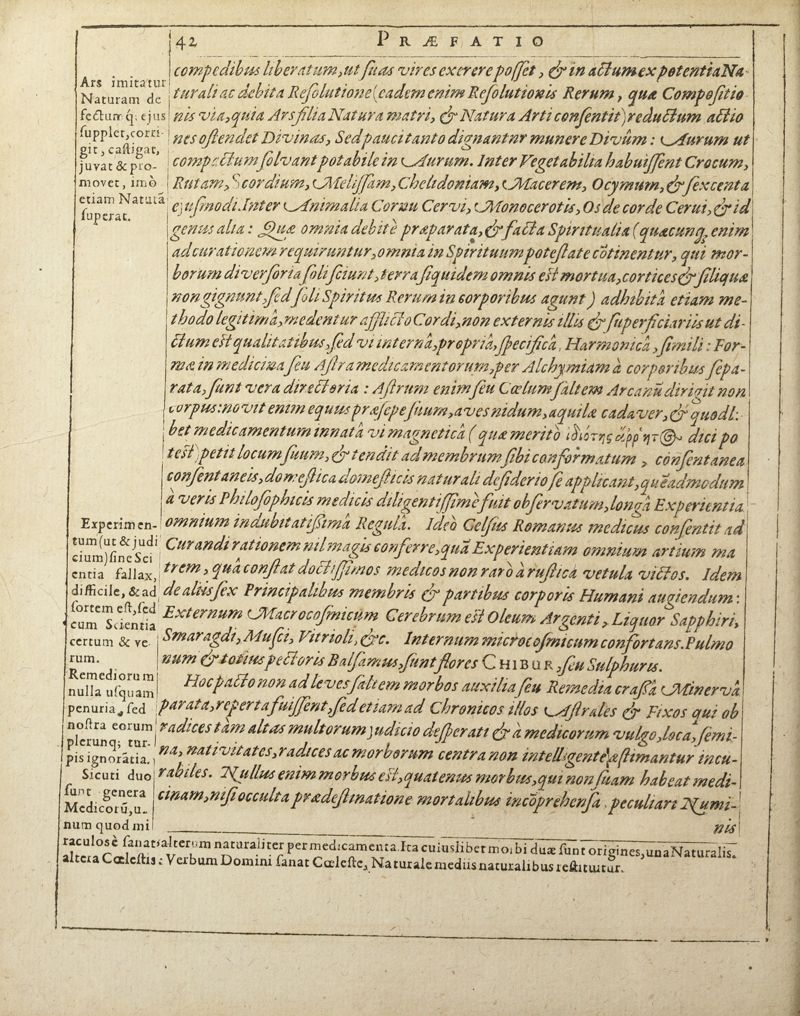 42
PRÆFATIO
compedibus liberatum, ut suas vires exerere posset, & in actum ex potentia Na-
turali ac debita Resolutione (eadem enim Resolutionis Rerum, quæ Compositio
nis via, quia Ars filia Natura matri, & Natura Arti consentit) reductum actio
nes ostendet Divinas, Sed pauci tanto dignantnr munere Divûm: Aurum ut
compactum solvant potabile in Aurum. Inter Vegetabilia habuissent Crocum,
Rutam, Scordium, Melissam, Chelidoniam, Macerem, Ocymum, & sexcenta
ejusmodi. Inter Animalia Cornu Cervi, Monocerotis, Os de corde Cerui, & id
genus alia: Quæ omnia debitè præparata, & facta Spiritualia (quæcunq; enim
ad curationem requiruntur, omnia in Spirituum potestate cõtinentur, qui mor-
borum diversoria soli sciunt, terra siquidem omnis est mortua, cortices & siliquæ
non gignunt, sed soli Spiritus Rerum in corporibus agunt) adhibitâ etiam me-
thodo legitimâ, medentur afflicto Cordi, non externis illis & superficiariis ut di-
ctum est qualitatibus, sed vi internâ, propriâ, specificâ, Harmonicâ, simili: For-
mæ in medicina seu Astra medicamentorum, per Alchymiam à corporibus sepa-
rata, sunt vera directoria: Astrum enim seu Cœlum saltem Arcanũ dirigit non
corpus: novit enim equus præsepe suum, aves nidum, aquilæ cadaver, & quodli-
bet medicamentum innatâ vi magneticâ (quæ meritò dici po
test) petit locum suum, & tendit ad membrum sibi conformatum, consentanea
consentaneis, domestica domesticis naturali desiderio se applicant, quẽadmodum
à veris Philosophicis medicis diligentissimè fuit observatum, longâ Experientia
omnium indubitatissimâ Regulâ. Ideò Celsus Romanus medicus consentit ad
Curandi rationem nil magis conferre, quã Experientiam omnium artium ma
trem, quâ constat doctissimos medicos non rarò à rusticâ vetula victos. Idem
de aliis sex Principalibus membris & partibus corporis Humani augiendum:
Externum Macrocosmicum Cerebrum est Oleum Argenti, Liquor Sapphiri,
Smaragdi, Musci, Vitrioli, &c. Internum microcosmicum confortans. Pulmo
num & totius pectoris Balsamus, sunt flores CHIBUR, seu Sulphuris.
Hoc pacto non ad leves saltem morbos auxilia seu Remedia crassâ Minervâ
parata, reperta fuissent, sed etiam ad Chronicos illos Astrales & Fixos qui ob
radices tam altas multorum judicio desperati & à medicorum vulgo, loca, semi-
na, nativitates, radices ac morborum centra non intelligente, æstimantur incu-
rabiles. Nullus enim morbus est, quatenus morbus, qui non suam habeat medi-
cinam, nisi occulta prædestinatione mortalibus incõprehensâ, peculiari Numi-
nis
Ars imitatur
Naturam de
fectum q; ejus
supplet, corri-
git, castigat,
juvat & pro-
movet, imò
etiam Naturã
superat.
Experimen-
tum (ut & judi
cium) sine Sci
entia fallax,
difficile, & ad
fortem est, sed
cum Scientia
certum & ve-
rum.
Remediorum
nulla usquam
penuria, sed
nostra eorum
plerunq; tur-
pis ignorãtia.
Sicuti duo
sunt genera
Medicorũ, u-
num quod mi
raculosè sanat: alterum naturaliter per medicamenta. Ita cuiuslibet morbi duæ sunt origines, una Naturalis.
altera Cœlestis: Verbum Domini sanat Cœleste, Naturale mediis naturalibus restituitur.